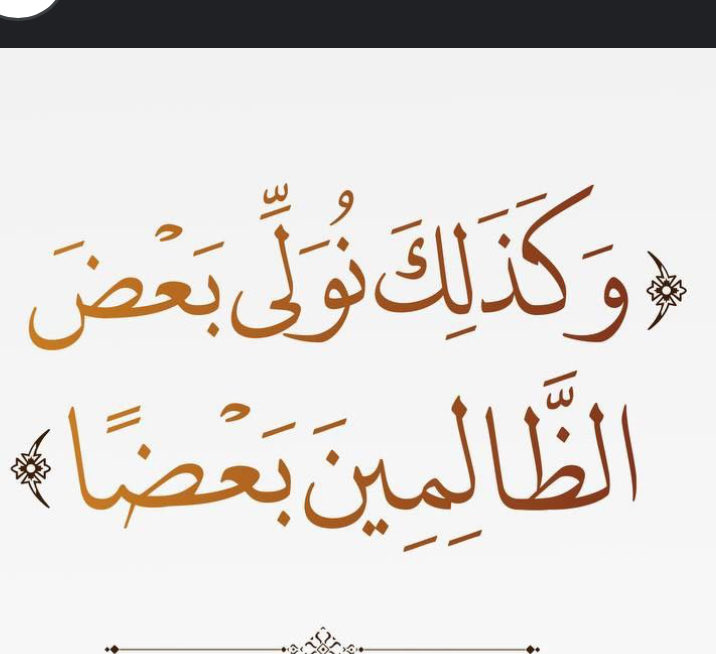 ﴿وَكَذَلِكَ نُوَلِّي بَعْضَ
الظَّالِمِينَ بَعْضًا﴾